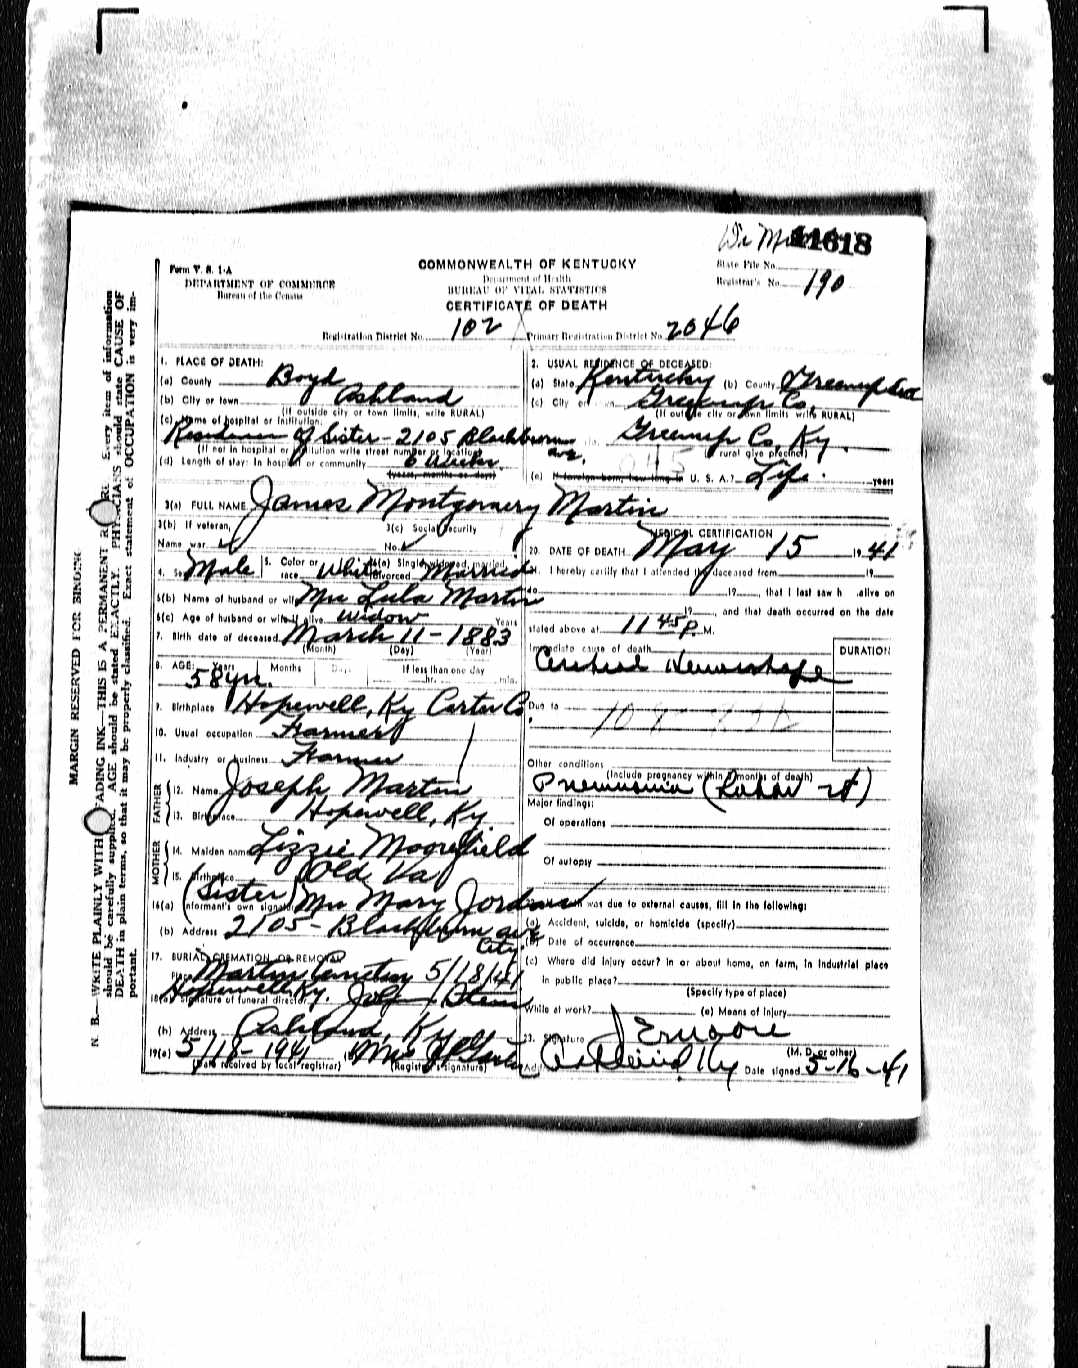 11618
Form V. S. 1-A
DEPARTMENT OF COMMERCE
Bureau of the Census
COMMONWEALTH OF KENTUCKY
Department of Health
BUREAU OF VITAL STATISTICS
CERTIFICATE OF DEATH
State File No.
Registrar's No. 190
Registration District No. 102 Primary Registration District No. 2046
MARGIN RESERVED FOR BINDING
1. PLACE OF DEATH:
(a) County Boyd
(b) City or town Ashland
(If outside city or town limits, write RURAL)
(c) Name of hospital or institution:
Residence of Sister - 2105 Blackburn ave.
(If not in hospital or institution write street number or location)
(d) Length of stay: In hospital or community 6 Weeks
(years, months or days)
2. USUAL RESIDENCE OF DECEASED:
(a) State Kentucky (b) County Greenup
(c) City or Greenup Co,
(If outside city or town limits, write RURAL)
Greenup Co, Ky.
(If rural give precinct)
(e) If foreign born, how long in U. S. A.? Life. years
3(a) FULL NAME James Montgomery Martin
3(b) If veteran,
Name war
3(c) Social Security
No.
4. Sex Male 5. Color or race White 6(a) Single, widowed, married, divorced Married
6(b) Name of husband or wife Mrs Lula Martin
6(c) Age of husband or wife if alive widow Years
7. Birth date of deceased March 11 - 1883
(Month) (Day) (Year)
8. AGE: Years Months Days If less than one day
58 yrs. hr. min.
9. Birthplace Hopewell, Ky Carter Co
10. Usual occupation Farmer
11. Industry or business Farmer
FATHER
12. Name Joseph Martin
13. Birthplace Hopewell, Ky
MOTHER
14. Maiden name Lizzie Moorefield
15. Birthplace Old Va
16(a) (Sister) Informant's own signature Mrs Mary Jordan
(b) Address 2105 - Blackburn ave City
17. BURIAL, CREMATION, OR REMOVAL
Place Martin Cemetery 5/18/41
Hopewell Ky.
18(a) Signature of funeral director
(b) Address Ashland, Ky
19(a) 5/18-1941 (b) Mrs
(Date received by local registrar) (Registrar's signature)
MEDICAL CERTIFICATION
20. DATE OF DEATH May 15 1941
21. I hereby certify that I attended the deceased from 19
19, that I last saw h alive on
19, and that death occurred on the date
stated above at 11 45 P.M.
Immediate cause of death DURATION
Cerebral Hemorrhage
Due to
Other conditions
(Include pregnancy within 3 months of death)
Pneumonia (Lobar
Major findings:
Of operations
Of autopsy
was due to external causes, fill in the following:
(a) Accident, suicide, or homicide (specify)
(b) Date of occurrence
(c) Where did injury occur? In or about home, on farm, in industrial place
in public place?
(Specify type of place)
While at work? (e) Means of Injury
23. Signature J E Moore
(M. D. or other)
Address Ashland Ky Date signed 5-16-41
N. B.—WRITE PLAINLY WITH UNFADING INK—THIS IS A PERMANENT RECORD. Every item of information
should be carefully supplied. AGE should be stated EXACTLY. PHYSICIANS should state CAUSE OF
DEATH in plain terms, so that it may be properly classified. Exact statement of OCCUPATION is very im-
portant.